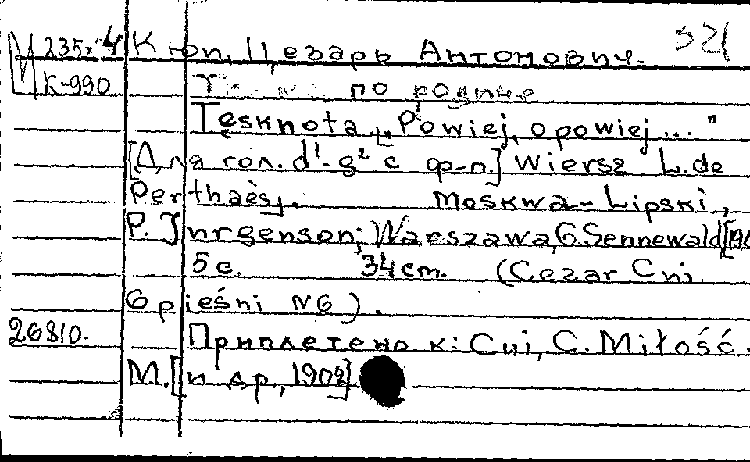 М 235х4 Кюи, Цезарь Антонович. 321
К-990 по родине
Tęsknota „Powiej, opowiej..."
[Для гол. d¹-g² с ф-п.] Wiersz L. de
Perthaèsj. Moskwa-Lipski,
P. Jurgenson; Warszawa, G. Sennewald
5 с. 34 cm. (Cezar Cui
6 pieśni N6).
26810. Приплетено к: Cui, C. Miłość.
М. [и др., 1902]